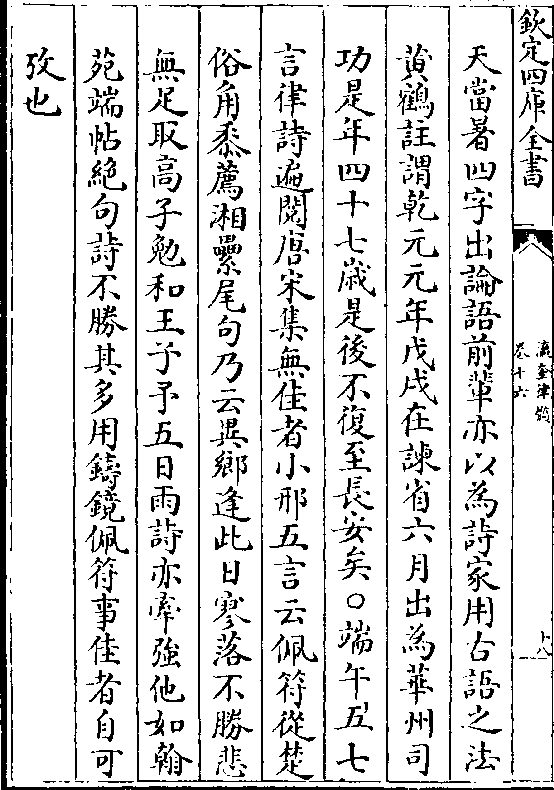 欽定四庫全書
瀛奎律髓
卷十六
十八
天當暑四字出論語前輩亦以為詩家用古語之法
黄鶴註謂乾元元年戊戌在諫省六月出為華州司
功是年四十七歲是後不復至長安矣○端午五七
言律詩遍閱唐宋集無佳者小邢五言云佩符從楚
俗角黍薦湘纍尾句乃云異鄉逢此日寥落不勝悲
無足取高子勉和王子予五日雨詩亦牽強他如翰
苑端帖絶句詩不勝其多用鑄鏡佩符事佳者自可
攷也